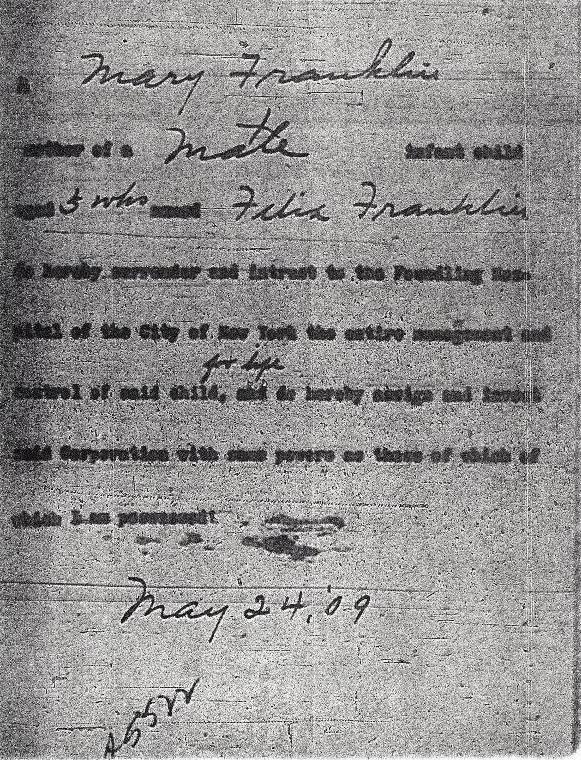 I Mary Franklin
mother of a Male infant child
aged 5 wks named Felix Franklin
do hereby surrender and intrust to the Foundling Hos-
pital of the City of New York the entire management and
for life
control of said child, and do hereby assign and invest
said Corporation with same powers as those of which of
which I am possessed:
May 24, '09